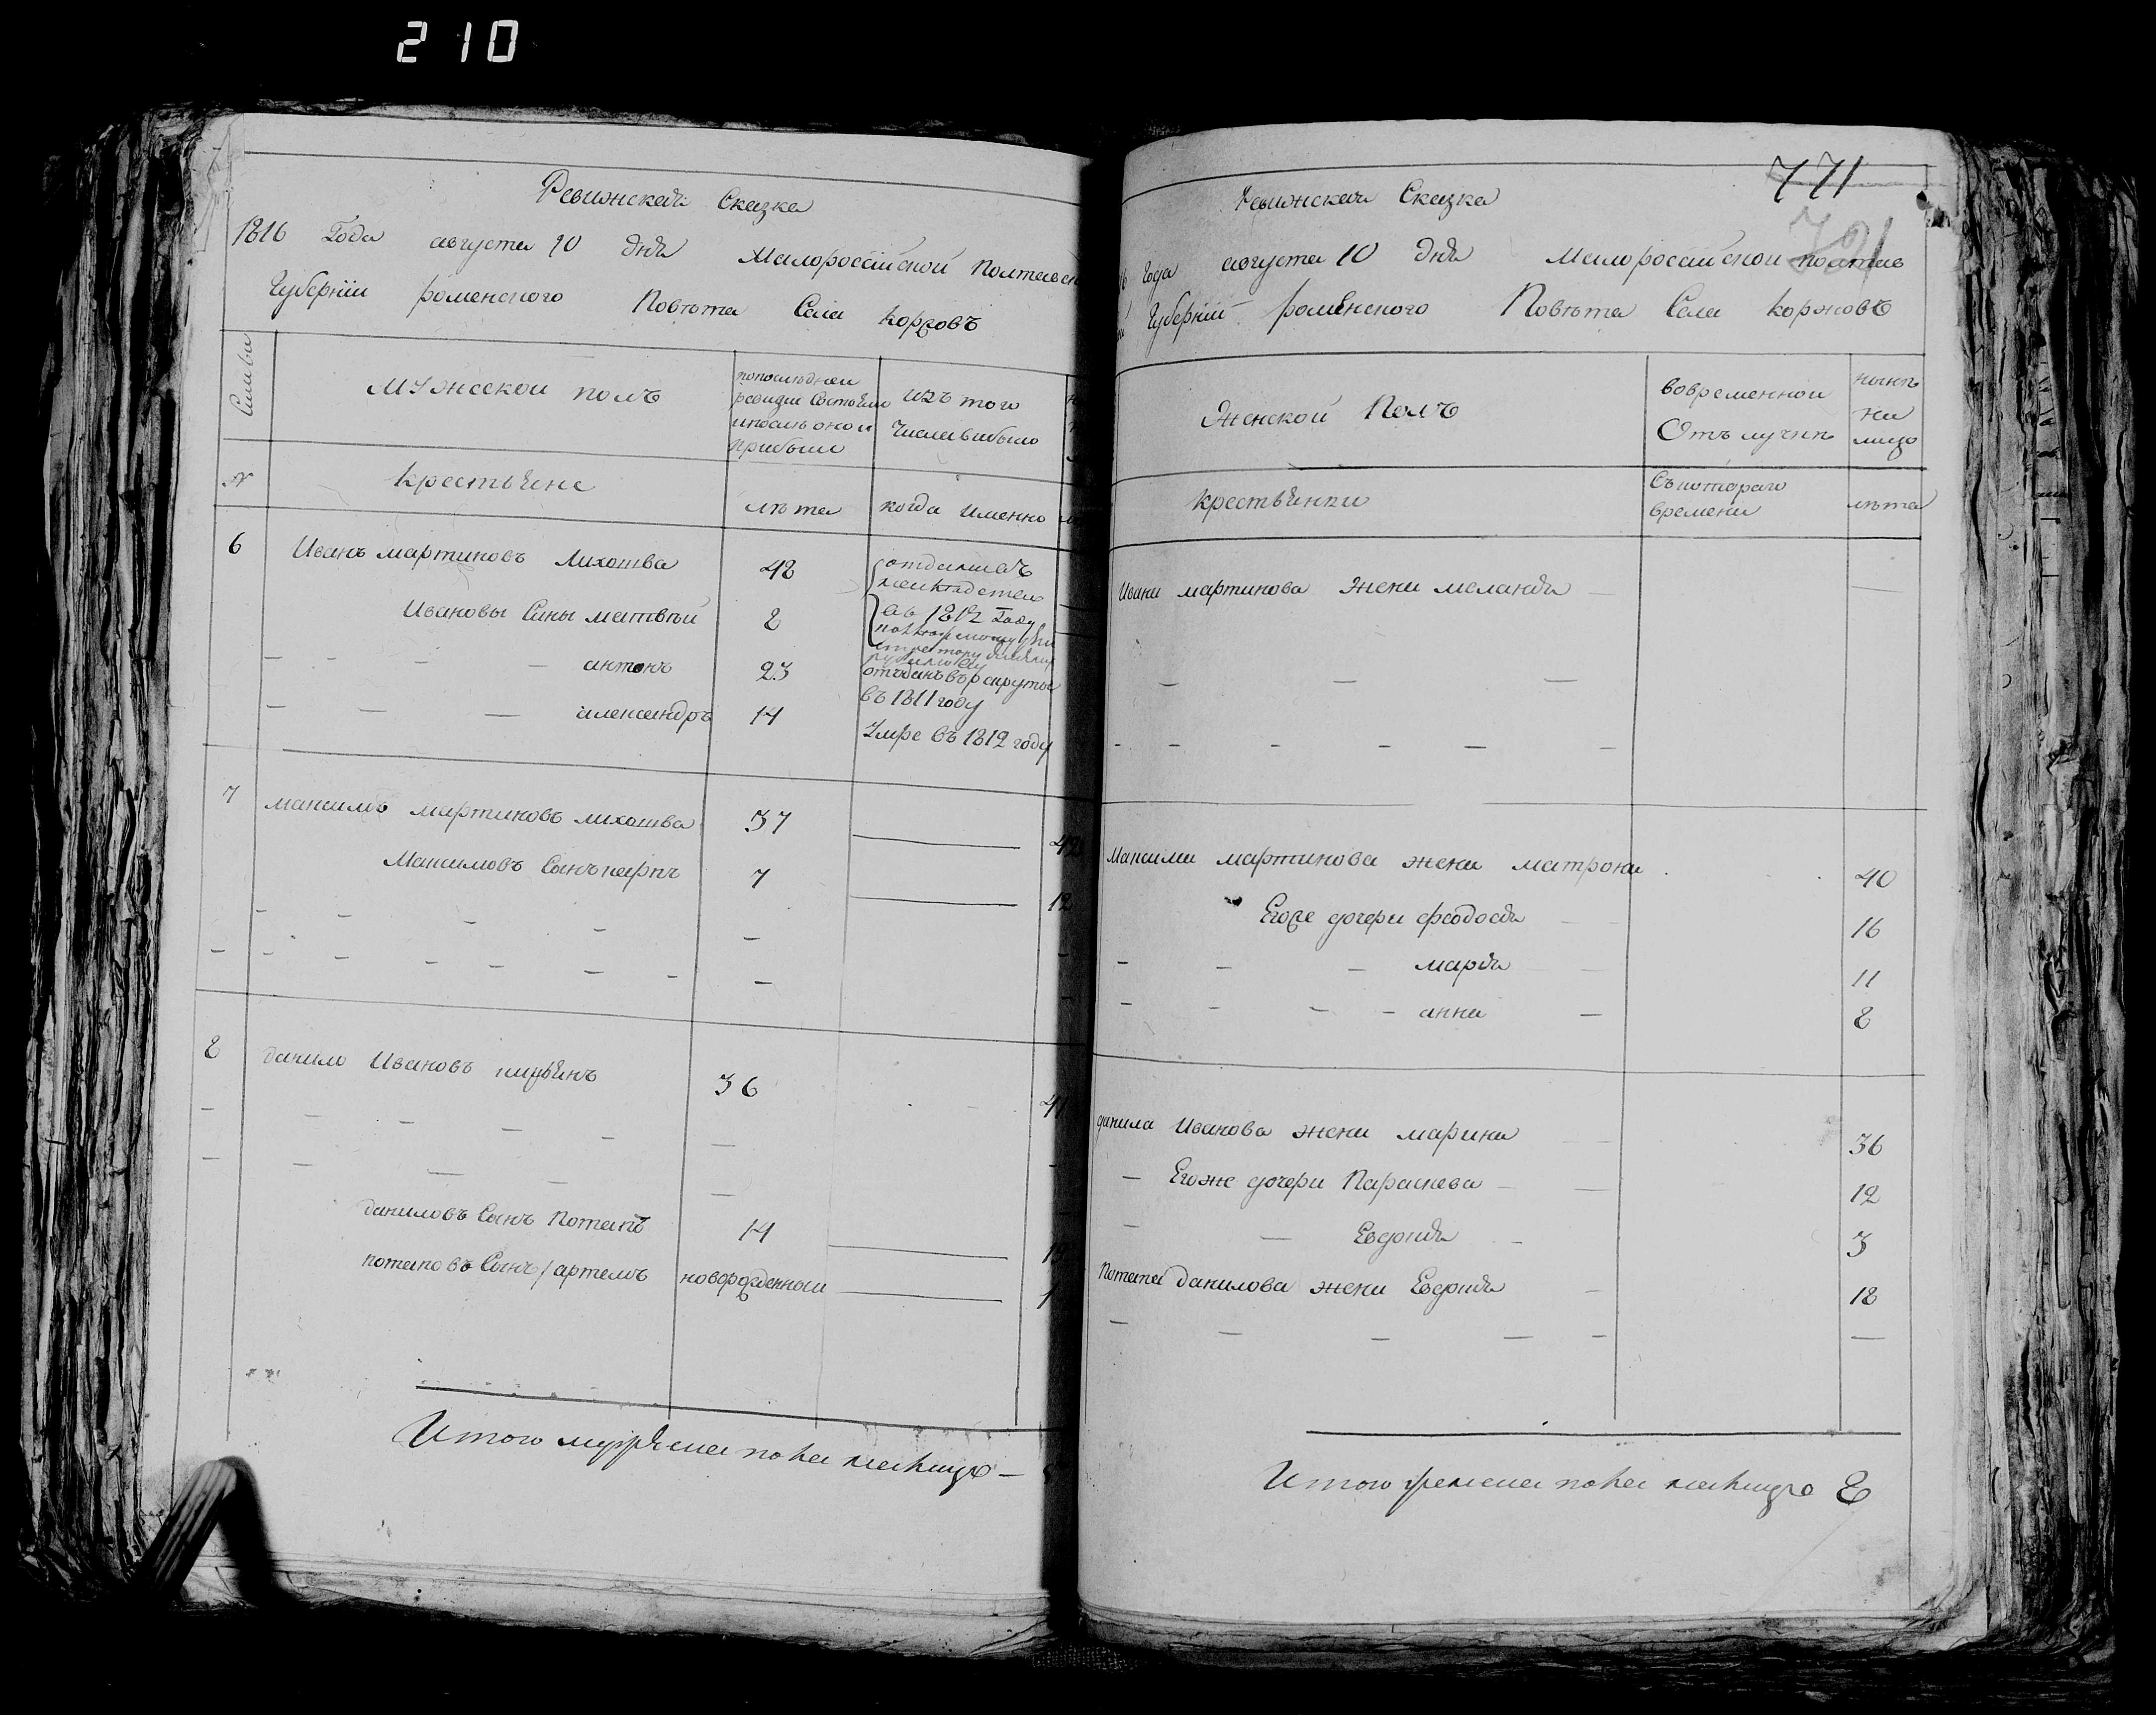 210
Ревижская Сказка
1816 Года августа 10 дня Малороссійской Полтавск
Губерніи роменского Повѣта Села Коржовъ
Мужеской полъ
попослѣдней ревизіи Состояло ипослѣ оной прибыли
изъ того числа выбыло
№ Крестьяне лѣта когда именно
6 Иванъ мартиновъ Лихошва 48
Ивановы Сыны матвѣй 8
а въ 1812 Году
- - - - антонъ 23 отъданъ въ рекруты въ 1811 году
- - - александръ 14 Умре въ 1812 году
7 максимъ мартиновъ лихошва 37 — 42
Максимовъ Сынъ карпъ 7 — 12
8 данило Ивановъ 36 41
даниловъ Сынъ Потапъ 14 —
потаповъ Сынъ артемъ новорожденный — 1
Итого мужеска пола налицо —
771
Ревижская Сказка
Года августа 10 дня Малороссійской полтав
Губерніи роменского Повѣта Села Коржовъ
Женской Полъ
вовременной Отълучкѣ
нынѣ на лицо
крестьянки
Съкотораго времени
лѣта
Ивана мартинова жена меланія — —
Максима мартинова жена матрона 40
Егоже дочери феодосія 16
- - - марія 11
- - - - анна — 8
данила Иванова жена марина 36
— Егоже дочери Параскева — 12
— — Евдокія 3
Потапа данилова жена Евдокія — 18
Итого женска пола налицо 8